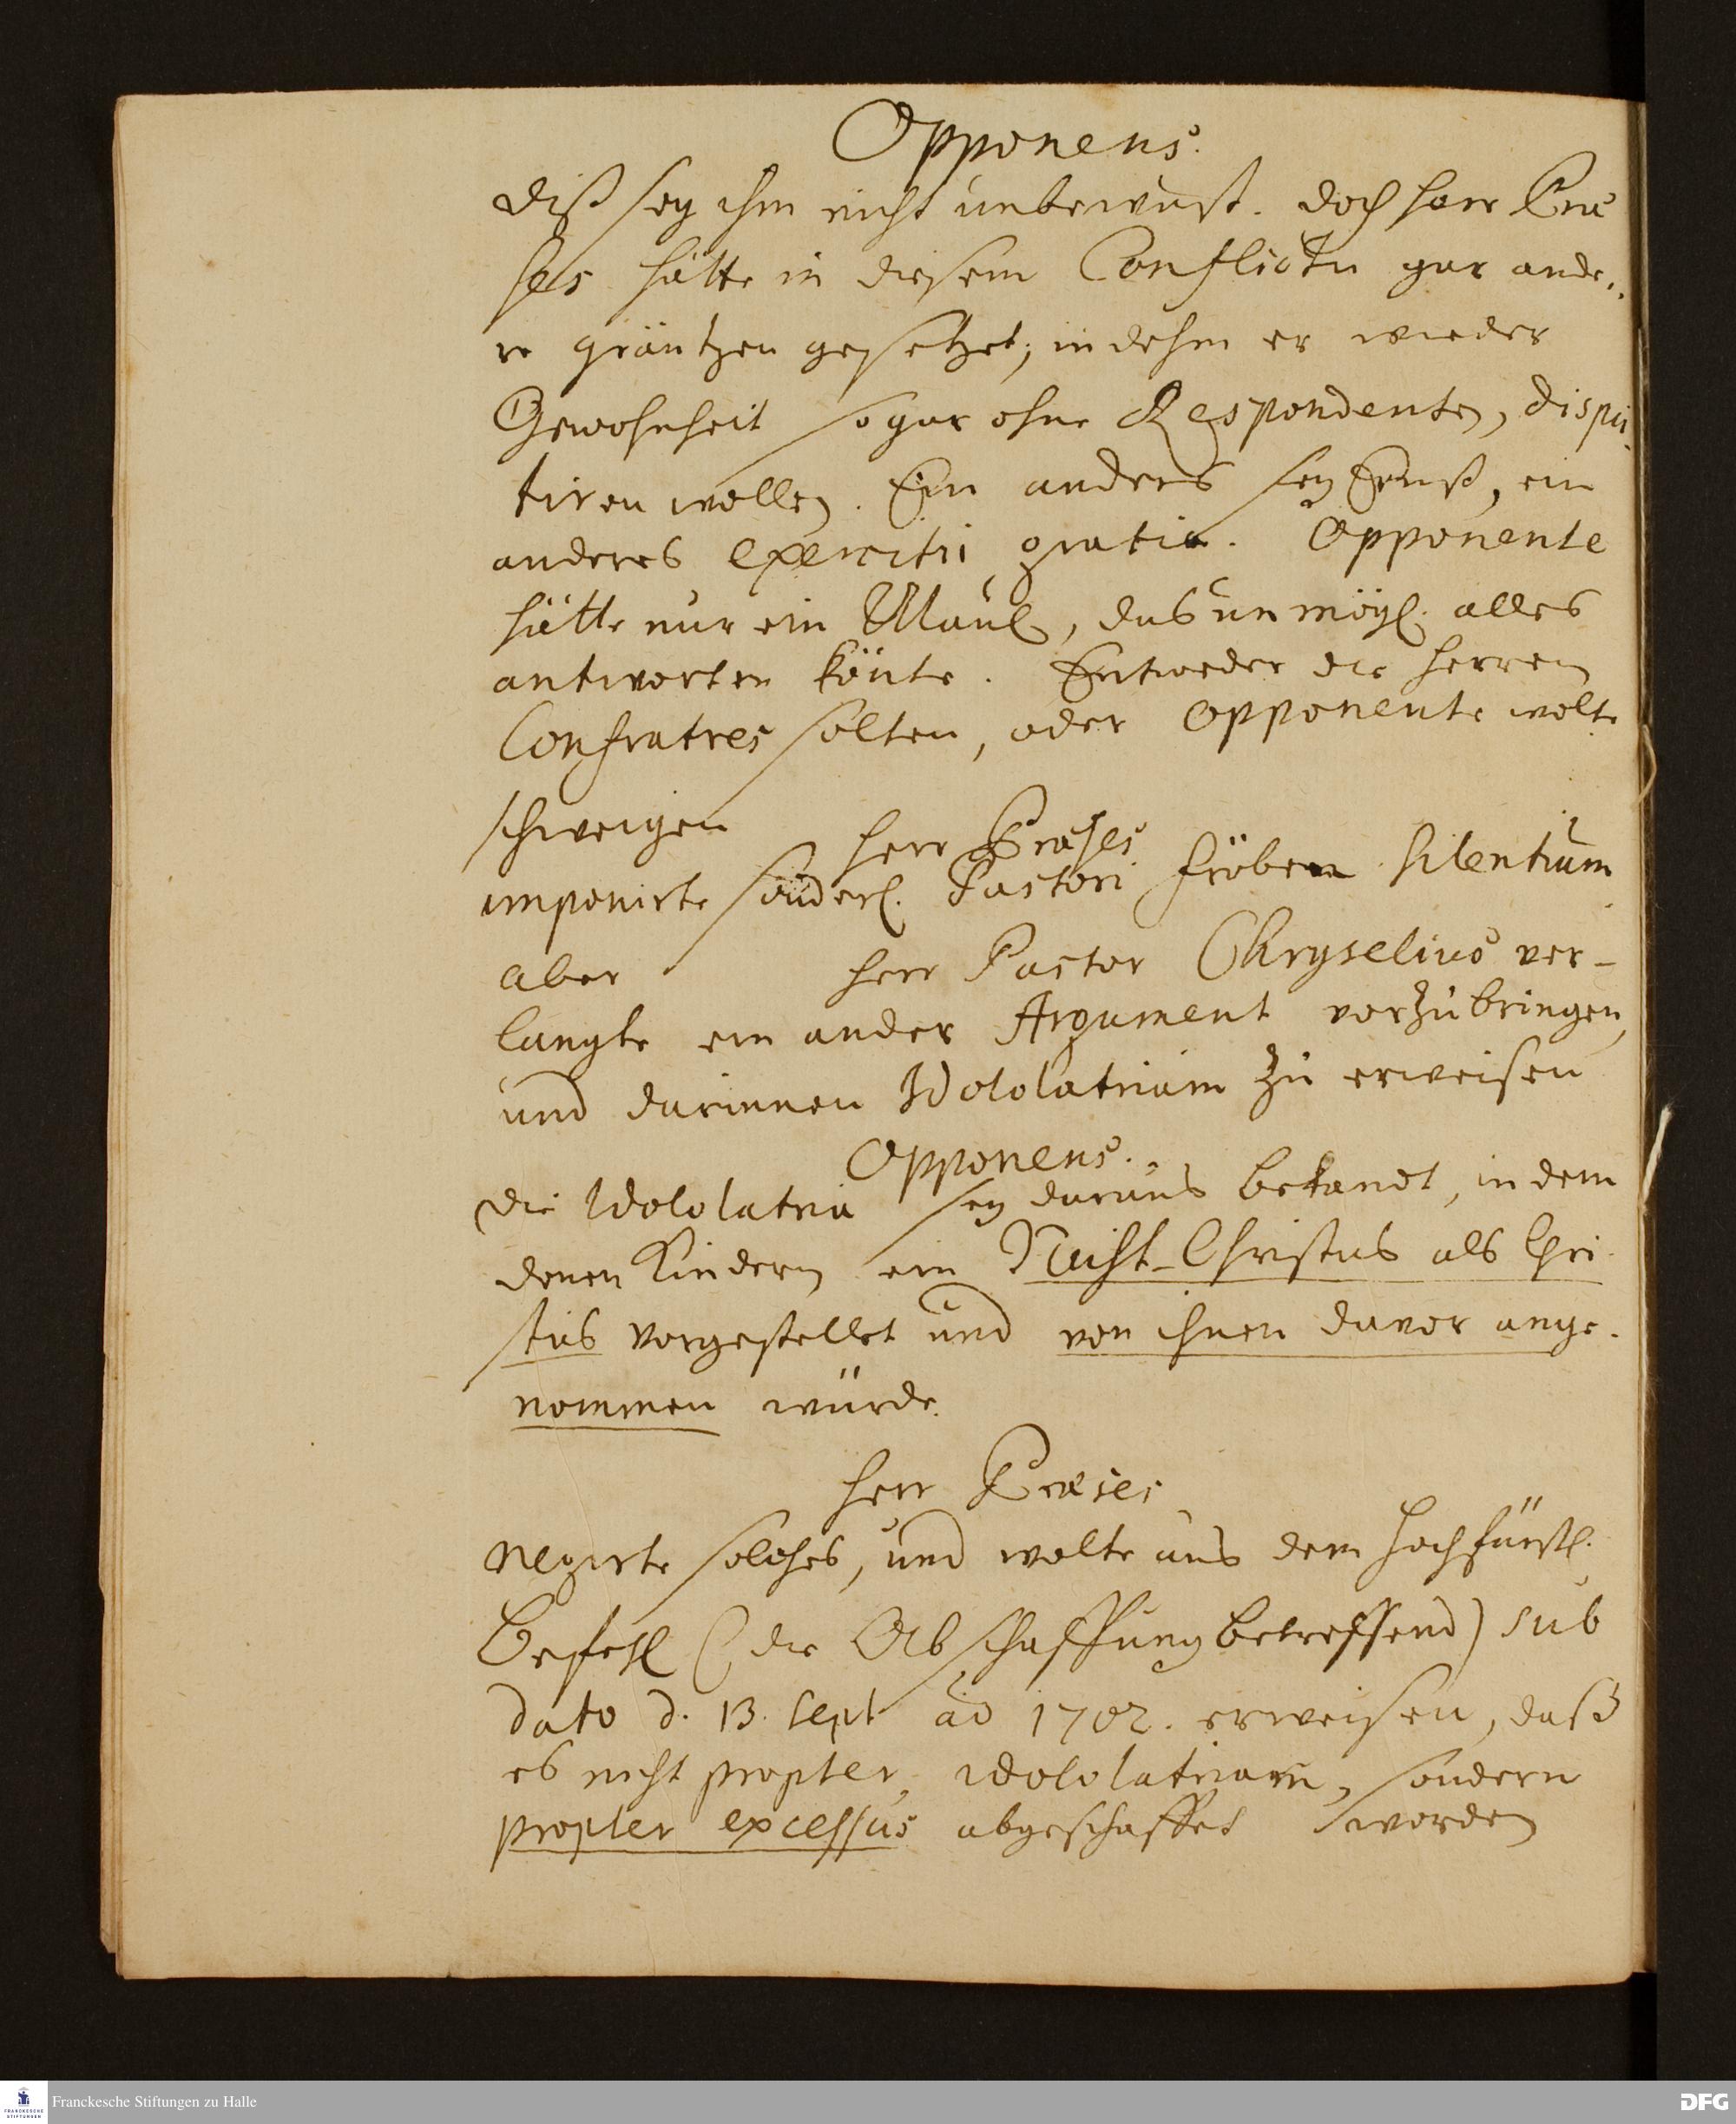 Opponens.
Diß sey ihm nicht unbewust. doch Herr Præ
ses hätte in diesem Conflictu gar ande..
re gräntzen gesetzet; indehm er wieder
Gewohnheit sogar ohne Respondenten, dispu
tiren wollen. Ein anders sey Ernst, ein
anderes exercitii gratia. Opponente
hätte nur ein Maul, das unmögl. alles
antworten könte. Entweder die Herren
Confratres solten, oder Opponente wolte
schweigen
Herr Præses
imponirte sonderl. Pastori Fröben silentium
aber Herr Pastor Chryselius ver-
langte ein ander Argument vorzubringen,
und darinnen Idololatriam zu erweisen
Opponens.
Die Idololatria sey daraus bekandt, indem
denen Kindern ein Nicht-Christus als Chri
stus vorgestellet und von ihnen davor ange.
nommen würde.
Herr Præses
negirte solches, und wolte aus dem Hochfürstl.
Befehl (die Abschaffung betreffend) sub
dato d. 13. Sept ao 1702. erweisen, daß
es nicht propter idololatriam, sondern
propter excessus abgeschaffet worden
Franckesche Stiftungen zu Halle
FRANCKESCHE
STIFTUNGEN
DFG